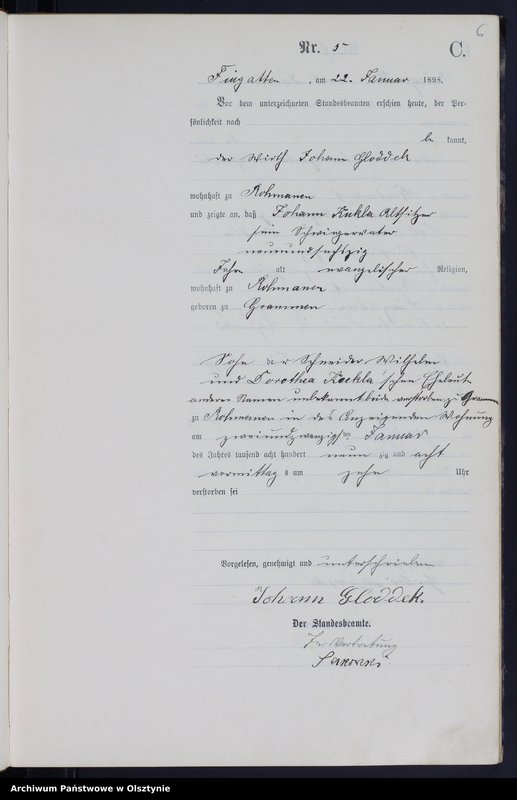 6
Nr. 5
C.
Fingatten, am 22. Januar 1898.
Vor dem unterzeichneten Standesbeamten erschien heute, der Per-
sönlichkeit nach
be kannt,
der Wirth Johann Gloddek
wohnhaft zu Rohmanen
und zeigte an, daß Johann Kukla Altsitzer
sein Schwiegervater
neunundsechszig
Jahre alt evangelischer Religion,
wohnhaft zu Rohmanen
geboren zu Grammen
Sohn der Schneider Wilhelm
und Dorothea Kukla'schen Eheleute
anderer Namen unbekannt beide verstorben zu Grammen
zu Rohmanen in des Anzeigenden Wohnung
am zweiundzwanzigsten Januar
des Jahres tausend acht hundert neun zig und acht
vormittag s um zehn Uhr
verstorben sei
Vorgelesen, genehmigt und unterschrieben
Johann Gloddek.
Der Standesbeamte.
In Vertretung
Archiwum Państwowe w Olsztynie